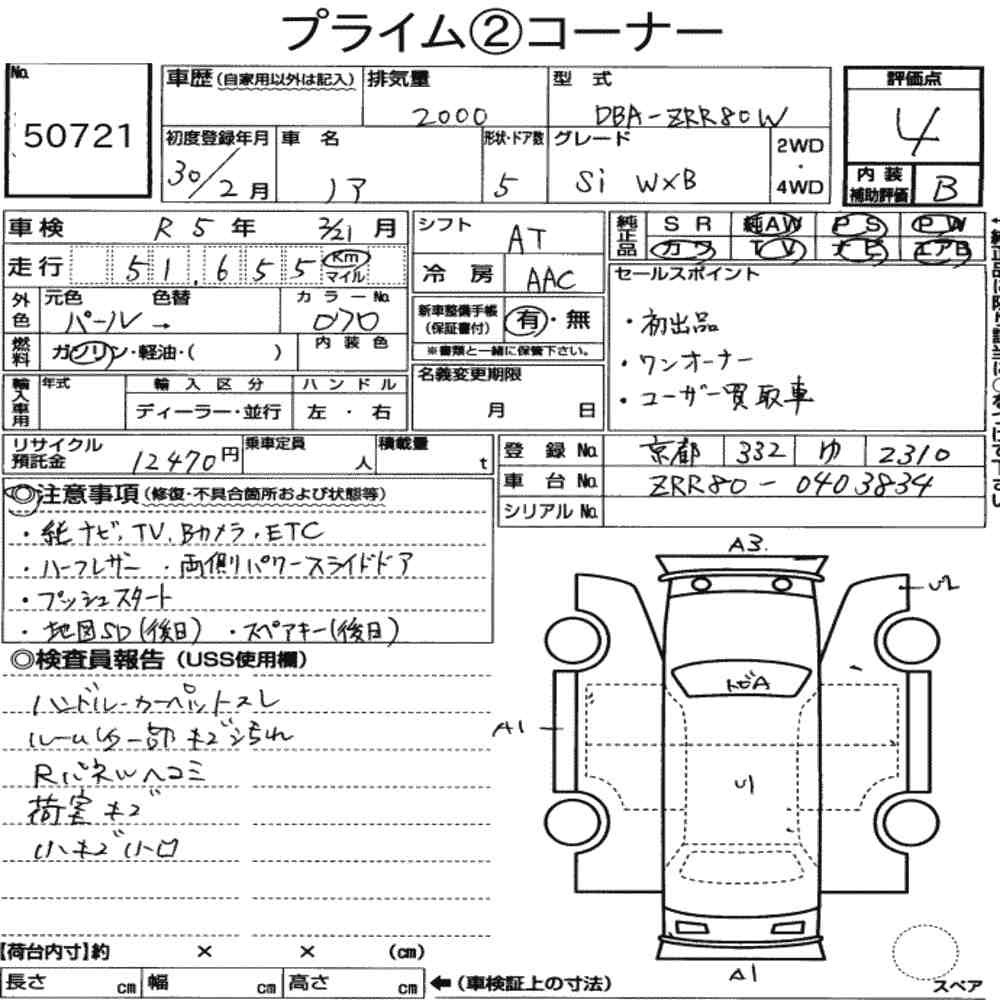 プライム②コーナー
No. 50721
車歴(自家用以外は記入) 排気量 2000 型式 DBA-ZRR80W
初度登録年月 30/2月 車名 ノア 形状・ドア数 5 グレード Si W×B 2WD・4WD
評価点 4
内装補助評価 B
車検 R5年 2/21月
走行 51,655 Km マイル
シフト AT
冷房 AAC
純正品 SR 純AW PS PW
カワ TV ナビ エアB
外色 元色 パール → 色替 カラーNo. 070
燃料 ガソリン・軽油・( ) 内装色
新車整備手帳(保証書付) 有・無
※書類と一緒に保管下さい。
セールスポイント
・初出品
・ワンオーナー
・ユーザー買取車
輸入車用 年式 輸入区分 ディーラー・並行 ハンドル 左・右
名義変更期限 月 日
リサイクル預託金 12470円 乗車定員 人 積載量 t
登録No. 京都 332 ゆ 2310
車台No. ZRR80-0403834
シリアルNo.
◎注意事項(修復・不具合箇所および状態等)
・純ナビ,TV,Bカメラ・ETC
・ハーフレザー ・両側パワースライドドア
・プッシュスタート
・地図SD(後日) ・スペアキー(後日)
◎検査員報告(USS使用欄)
ハンドル・カーペットスレ
ルーム内一部キズ汚れ
Rパネルヘコミ
荷室キズ
小キズ小凹
A3.
U2
トビA
A1
U1
A1
【荷台内寸】約 × × (cm)
長さ cm 幅 cm 高さ cm ←(車検証上の寸法)
スペア